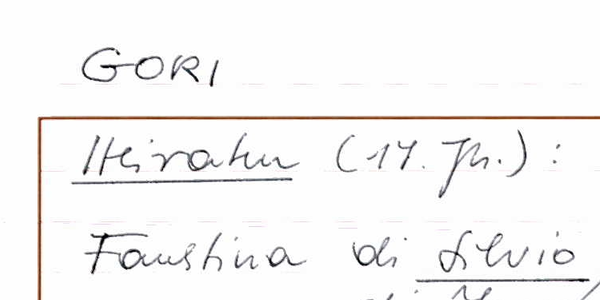 GORI
Heiraten (17. Jh.):
Faustina di Silvio